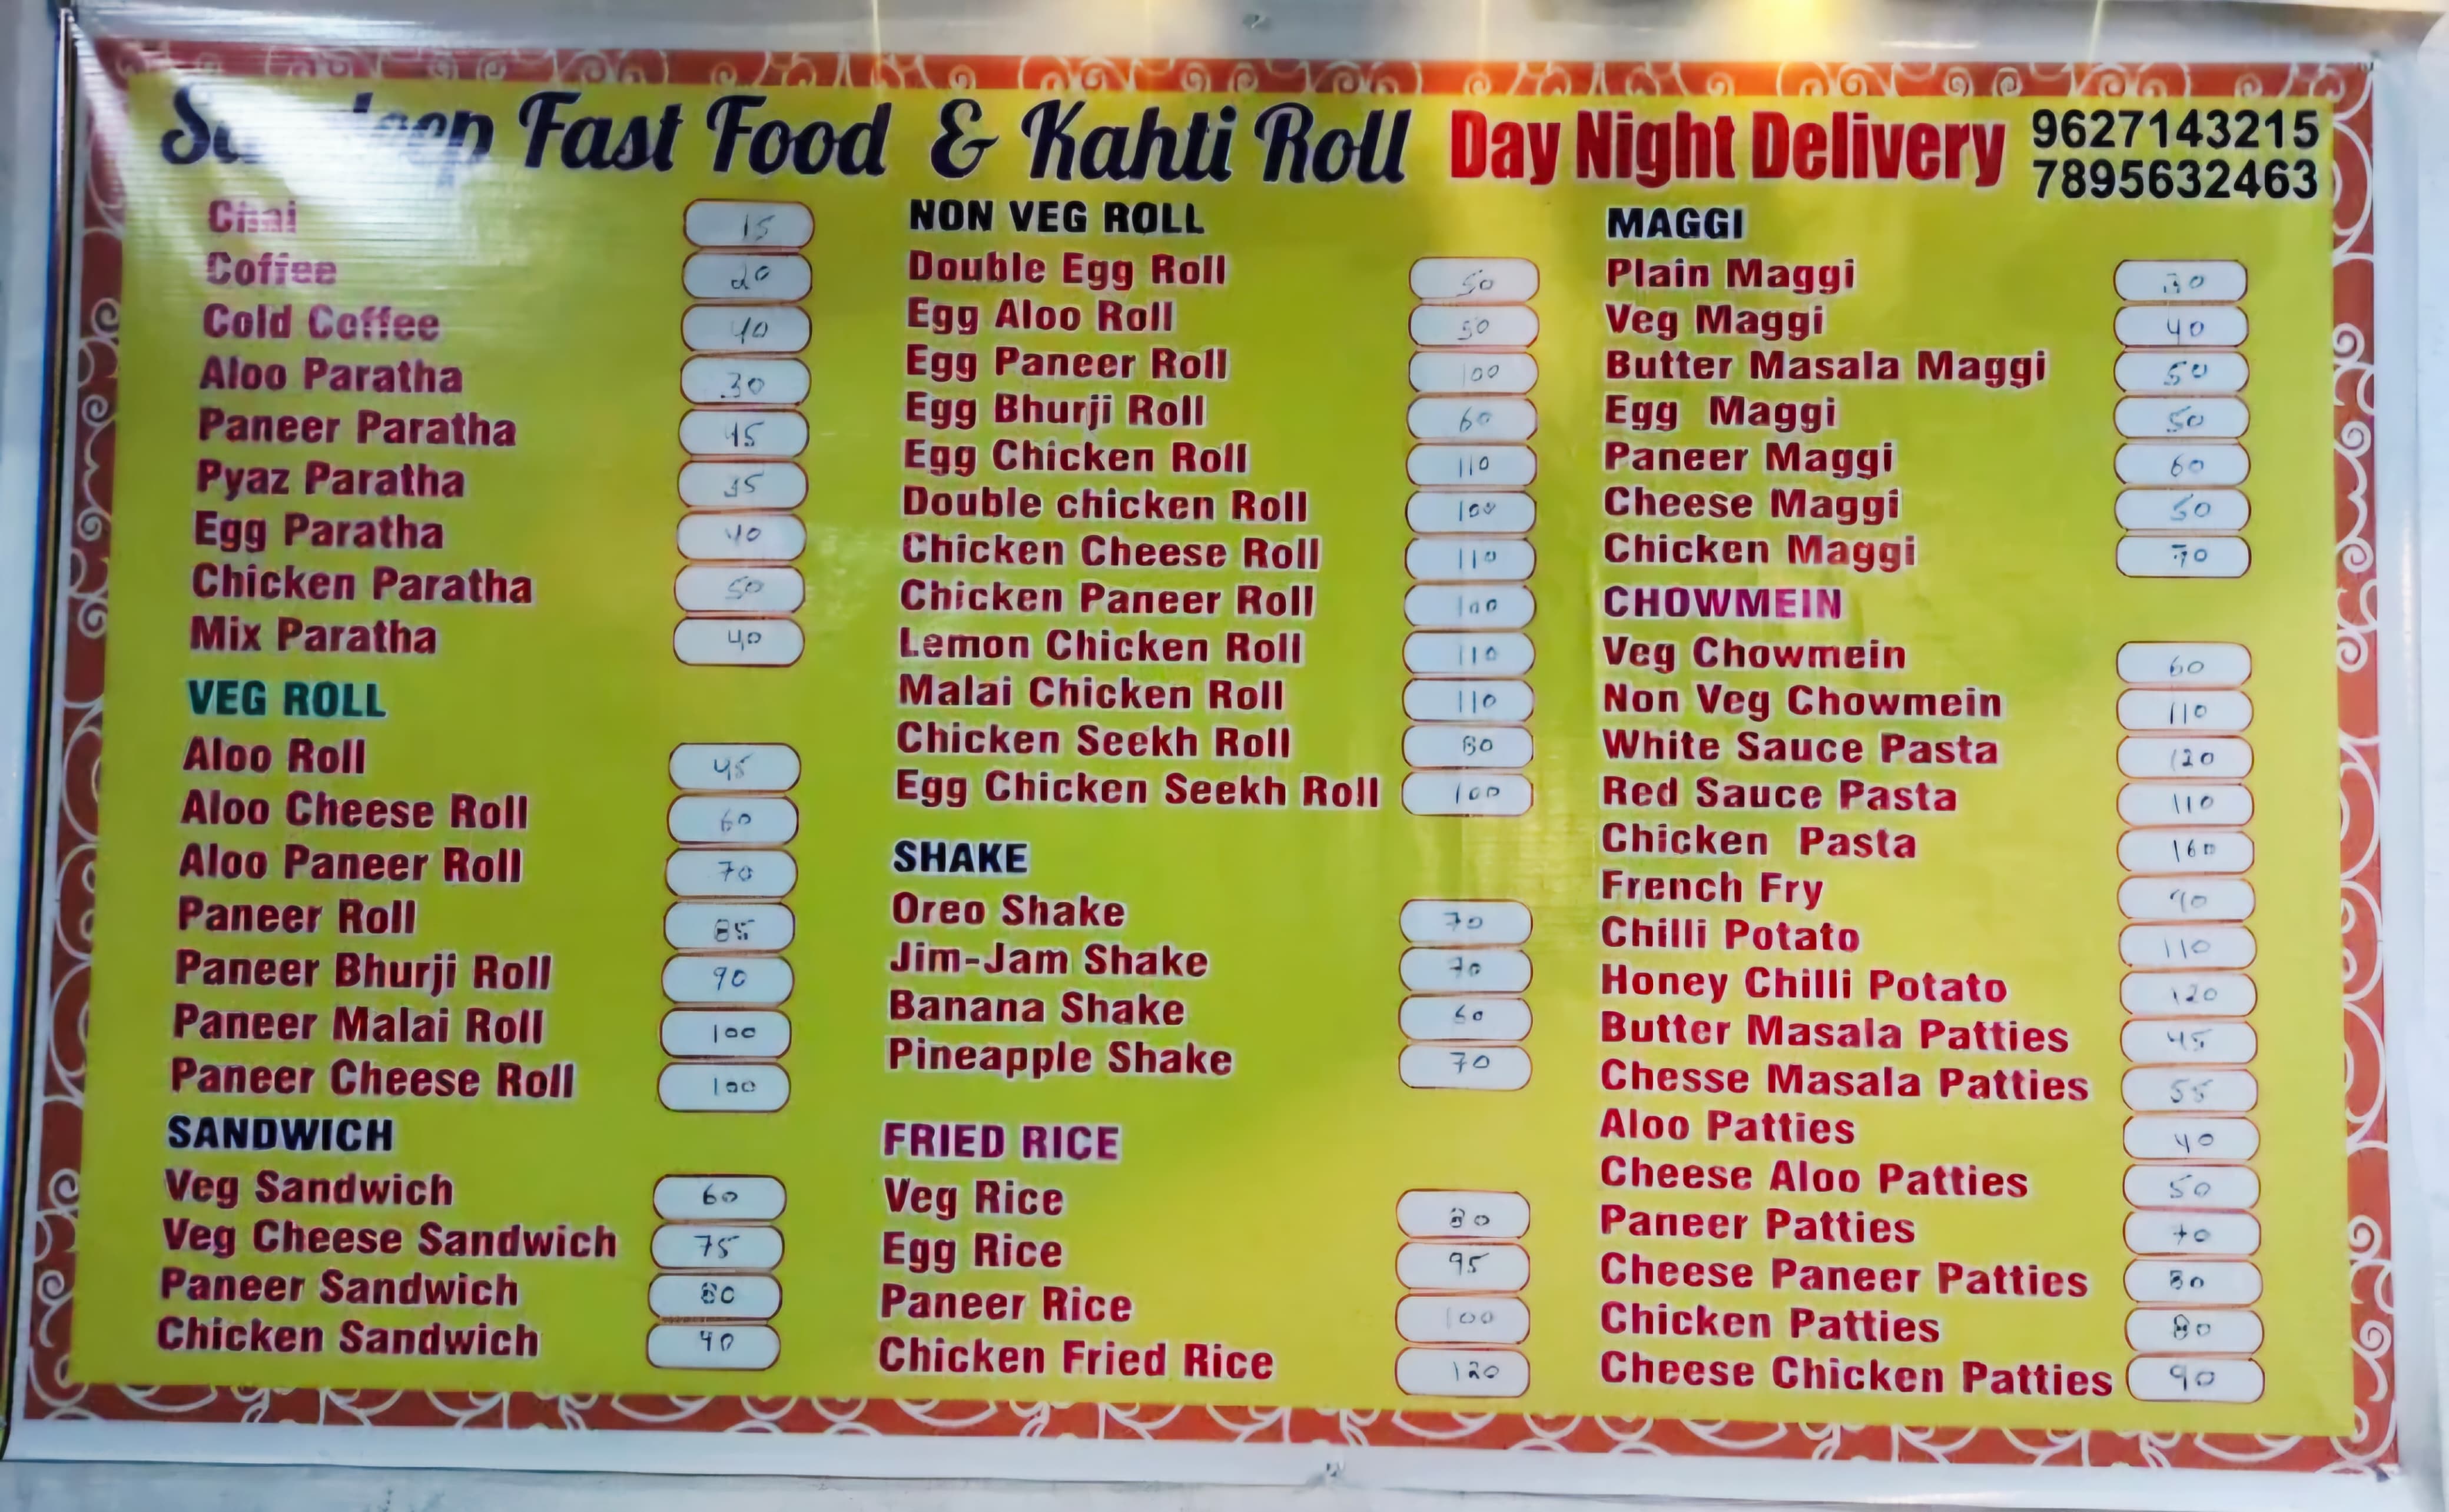 Fast Food & Kahti Roll Day Night Delivery 9627143215
7895632463
Chai 15
Coffee 20
Cold Coffee 40
Aloo Paratha 30
Paneer Paratha 45
Pyaz Paratha 35
Egg Paratha 40
Chicken Paratha 50
Mix Paratha 40
VEG ROLL
Aloo Roll 45
Aloo Cheese Roll 60
Aloo Paneer Roll 70
Paneer Roll 85
Paneer Bhurji Roll 90
Paneer Malai Roll 100
Paneer Cheese Roll 100
SANDWICH
Veg Sandwich 60
Veg Cheese Sandwich 75
Paneer Sandwich 80
Chicken Sandwich 90
NON VEG ROLL
Double Egg Roll 50
Egg Aloo Roll 50
Egg Paneer Roll 100
Egg Bhurji Roll 60
Egg Chicken Roll 110
Double chicken Roll 100
Chicken Cheese Roll 110
Chicken Paneer Roll 100
Lemon Chicken Roll 110
Malai Chicken Roll 110
Chicken Seekh Roll 80
Egg Chicken Seekh Roll 100
SHAKE
Oreo Shake 70
Jim-Jam Shake 70
Banana Shake 60
Pineapple Shake 70
FRIED RICE
Veg Rice 80
Egg Rice 95
Paneer Rice 100
Chicken Fried Rice 120
MAGGI
Plain Maggi 30
Veg Maggi 40
Butter Masala Maggi 50
Egg Maggi 50
Paneer Maggi 60
Cheese Maggi 50
Chicken Maggi 70
CHOWMEIN
Veg Chowmein 60
Non Veg Chowmein 110
White Sauce Pasta 120
Red Sauce Pasta 110
Chicken Pasta 160
French Fry
Chilli Potato 110
Honey Chilli Potato 120
Butter Masala Patties 45
Chesse Masala Patties 55
Aloo Patties 40
Cheese Aloo Patties 50
Paneer Patties 70
Cheese Paneer Patties 80
Chicken Patties 80
Cheese Chicken Patties 90